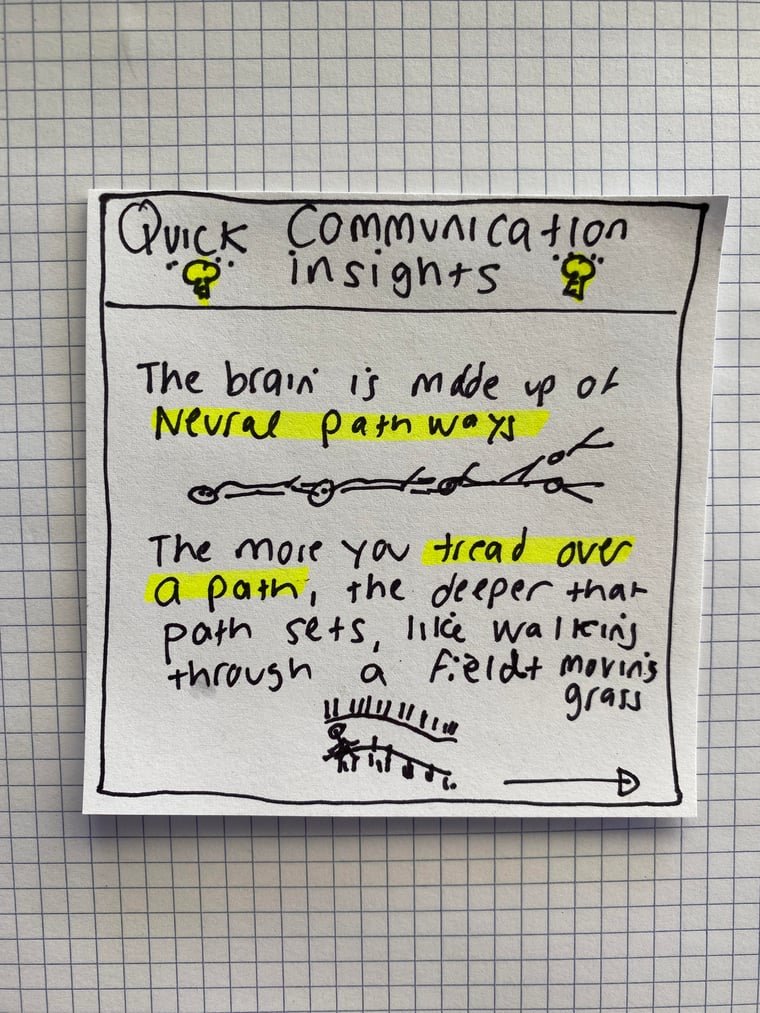 Quick Communication
insights
The brain is made up of
Neural pathways
The more you tread over
a path, the deeper that
path sets, like walking
through a field + moving
grass